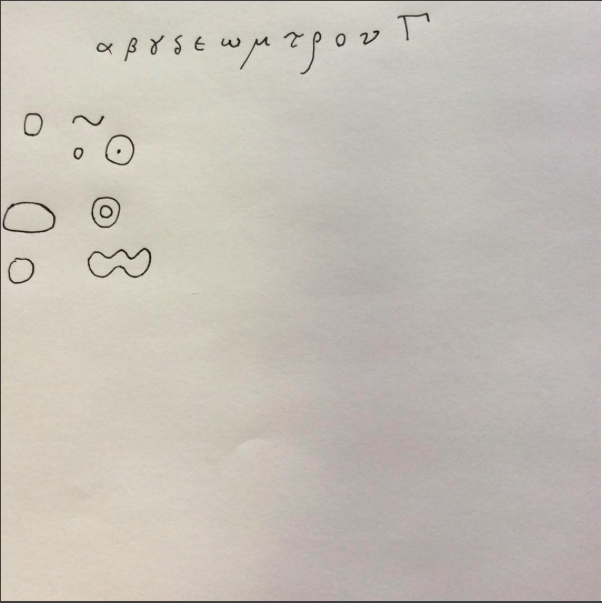 α β γ δ ε ω μ τ ρ ο ν Γ